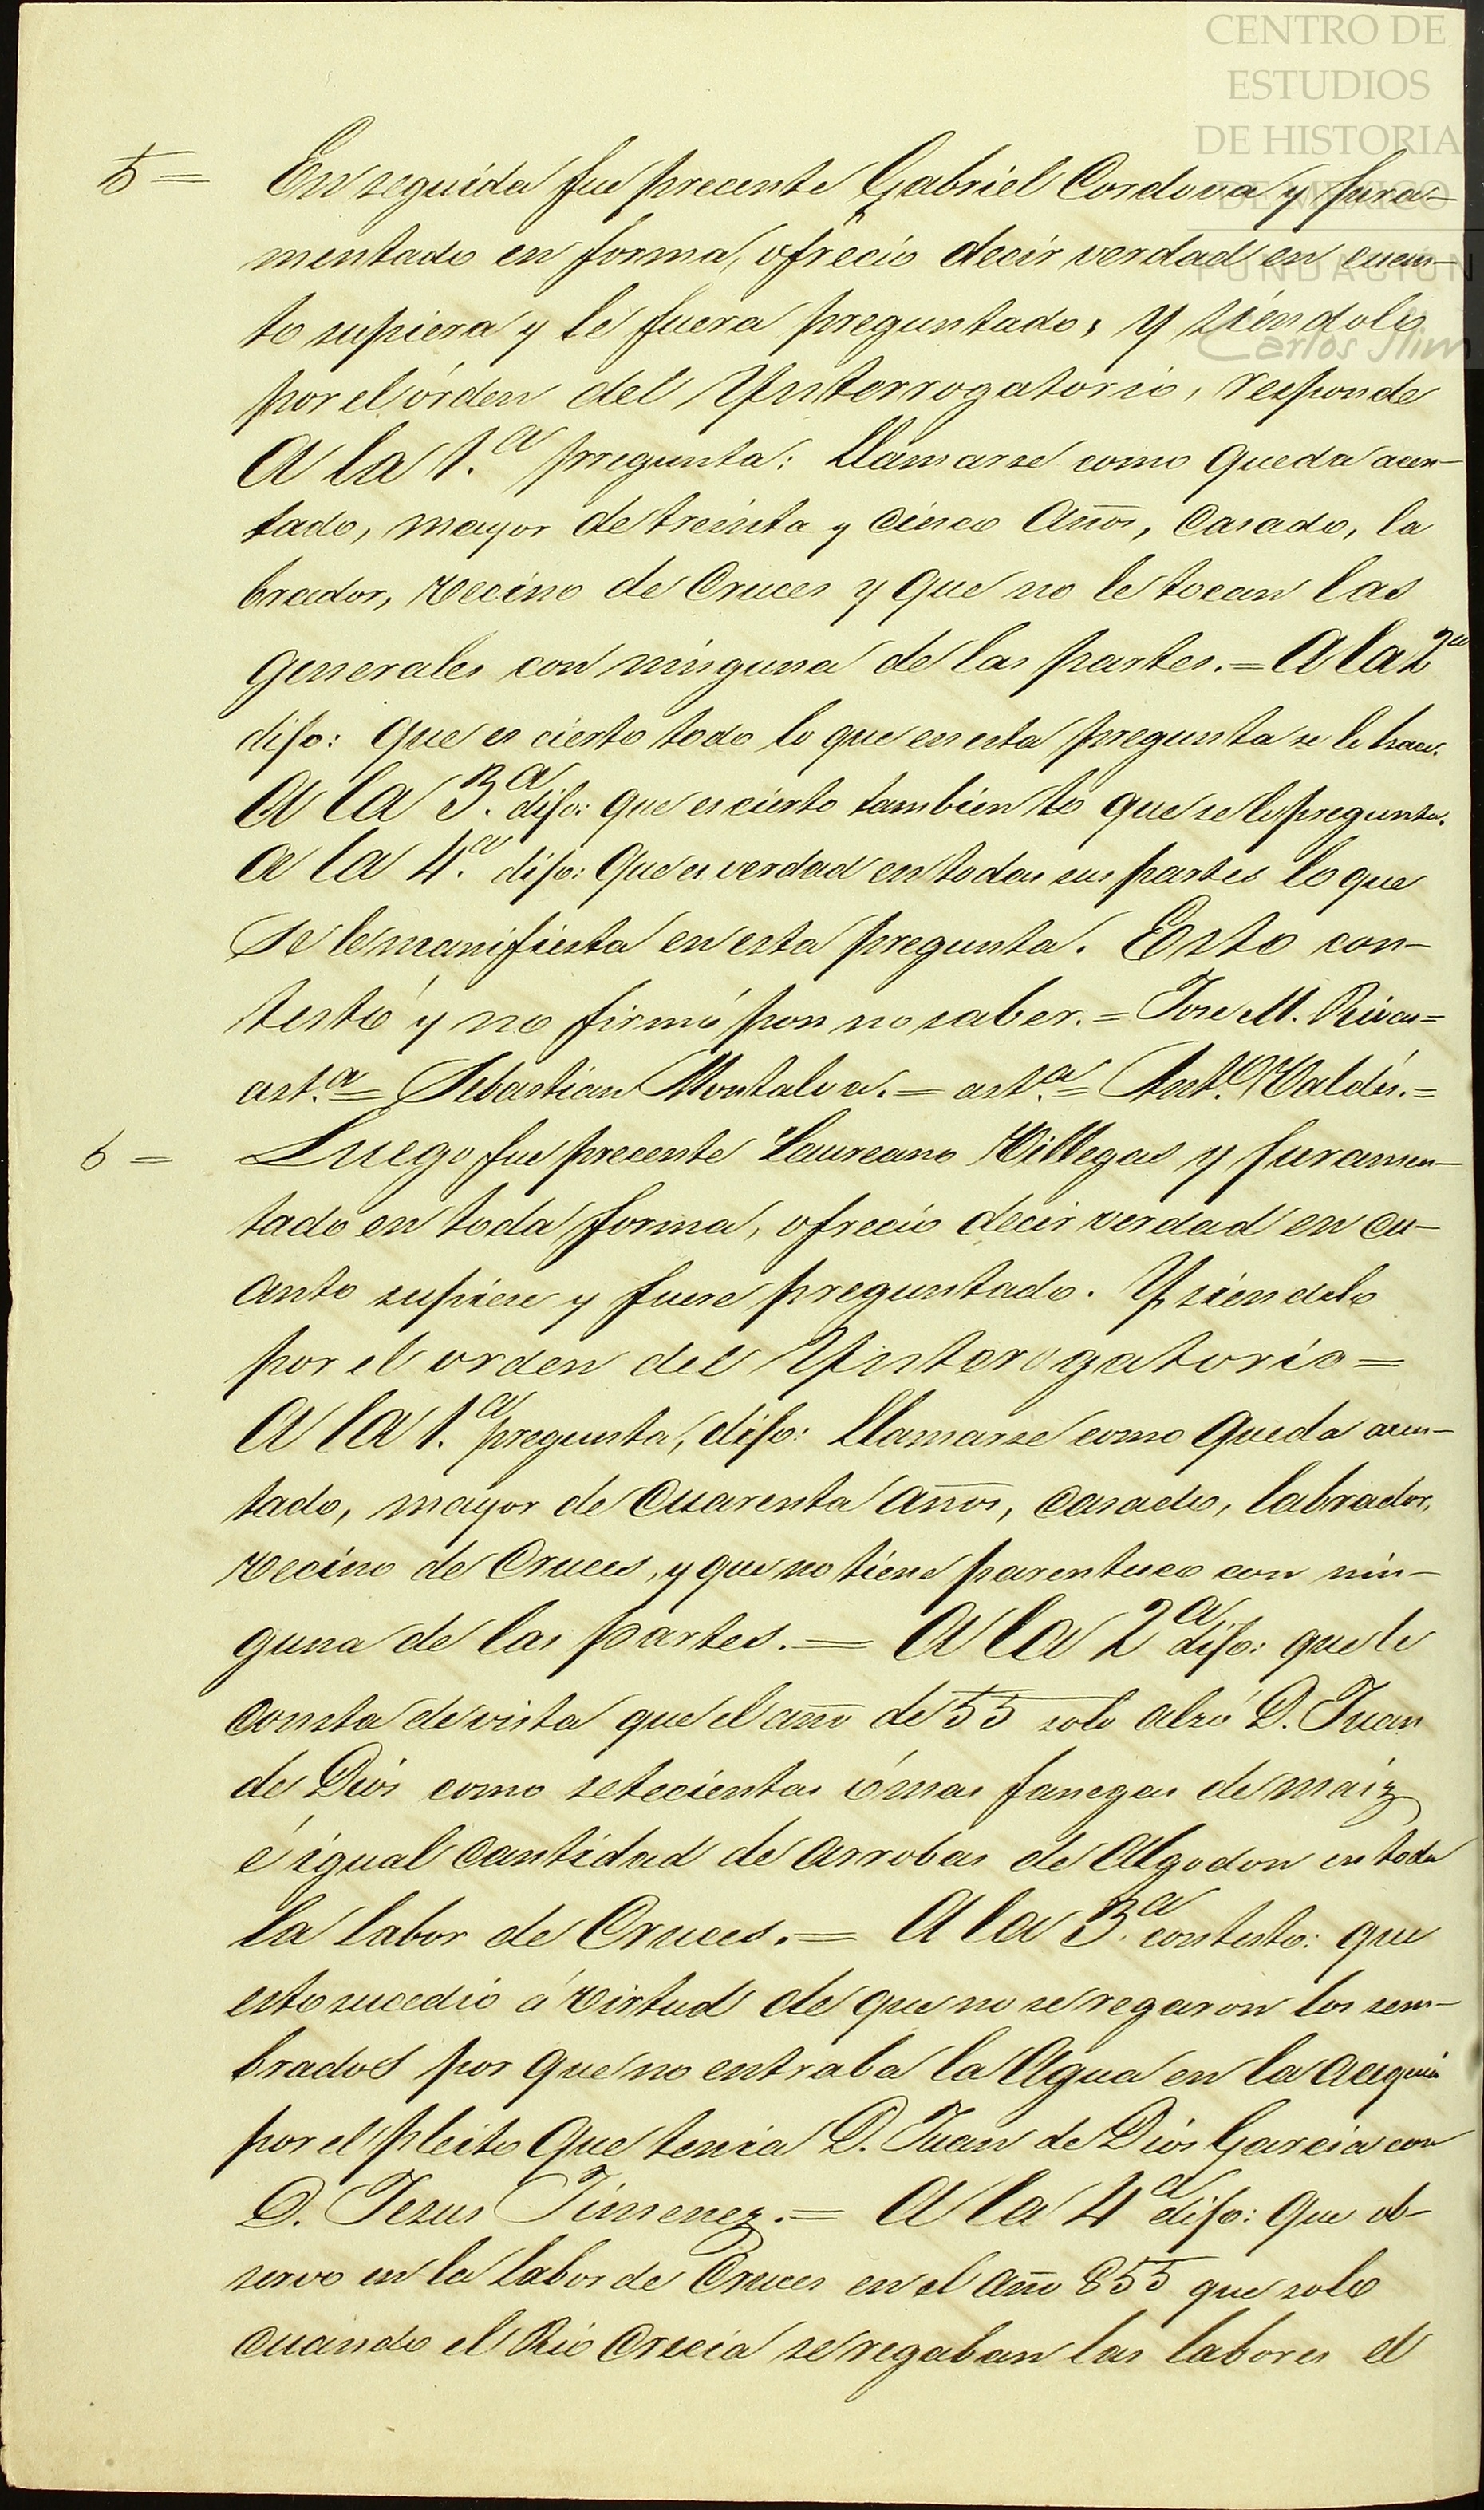 CENTRO DE
ESTUDIOS
DE HISTORIA
DE MÉXICO
FUNDACIÓN
Carlos Slim
5 = En seguida fue precente Gabriel Cordova y jura-
mentado en forma, ofrecio decir verdad en cuan-
to supiera y le fuera preguntado, y siéndole
por el órden del Ynterrogatorio, responde
A la 1.a pregunta: Llamarse como queda acen-
tado, mayor de treinta y cinco años, casado, la
brador, vecino de Cruces y que no le tocan las
generales con ninguna de las partes. = A la 2da
dijo: que es cierto todo lo que en esta pregunta se le hace.
A la 3.a dijo: que es cierto tambien lo que se le pregunta.
A la 4.a dijo: Que es verdad en todas sus partes lo que
se le manifiesta en esta pregunta. Esto con-
testó y no firmó por no saber. = Jose M. Rivas =
ast.a = Sebastian Montalvo. = ast.a = Ant.o Valdés. =
6 = Luego fue precente Laureano Villegas y juramen-
tado en toda forma, ofrecio decir verdad en cu-
anto supiese y fuere preguntado. Y siendolo
por el orden del Ynterogatorio =
A la 1.a pregunta, dijo: Llamarse como queda acen-
tado, mayor de cuarenta años, casado, labrador,
vecino de Cruces, y que no tiene parentesco con nin-
guna de las partes. = A la 2a dijo: que le
consta de vista que el año de 55 solo alzó D. Juan
de Dios como setecientas ó mas fanegas de maiz
é igual cantidad de arrobas de Algodon en toda
la labor de Cruces. = A la 3.a contesto: que
esto sucedio á virtud de que no se regaron los sem-
brados por que no entraba la Agua en la acequia
por el pleito que tenia D. Juan de Dios Garcia con
D. Jesus Jimenez. = A la 4a dijo: Que ob-
servo en la labor de Cruces en el año 855 que solo
cuando el Rio crecia se regaban las labores el